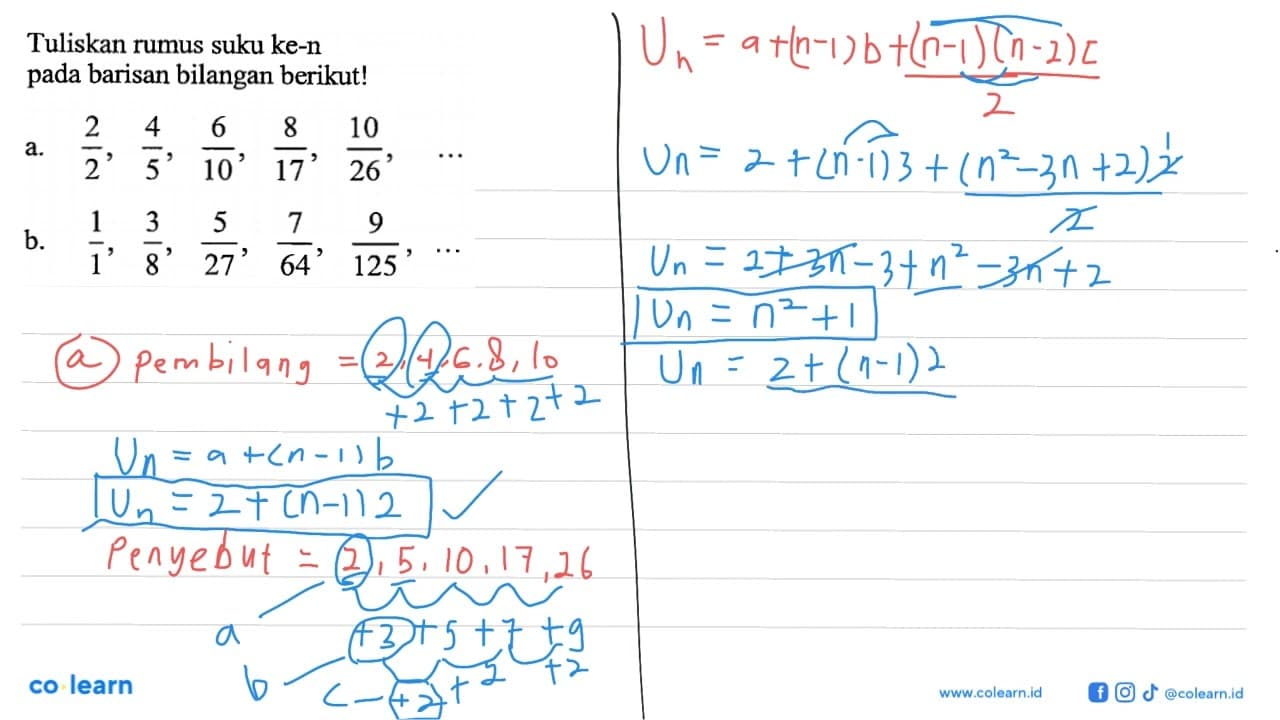 Tuliskan rumus suku ke-n
pada barisan bilangan berikut!
a. 2/2, 4/5, 6/10, 8/17, 10/26, ...
b. 1/1, 3/8, 5/27, 7/64, 9/125, ...
(a) pembilang = 2, 4, 6. 8, 10
+2 +2 +2 +2
Un = a + (n-1) b
Un = 2 + (n-1) 2
Penyebut = 2, 5, 10, 17, 26
a +3 +5 +7 +9
b c - +2 +2 +2
Un = a + (n-1) b + (n-1)(n-2)c/2
Un = 2 + (n-1) 3 + (n²-3n+2)2/2 1
Un = 2 + 3n - 3 + n² - 3n + 2
Un = n² + 1
Un = 2 + (n-1) 2
co learn
www.colearn.id @colearn.id